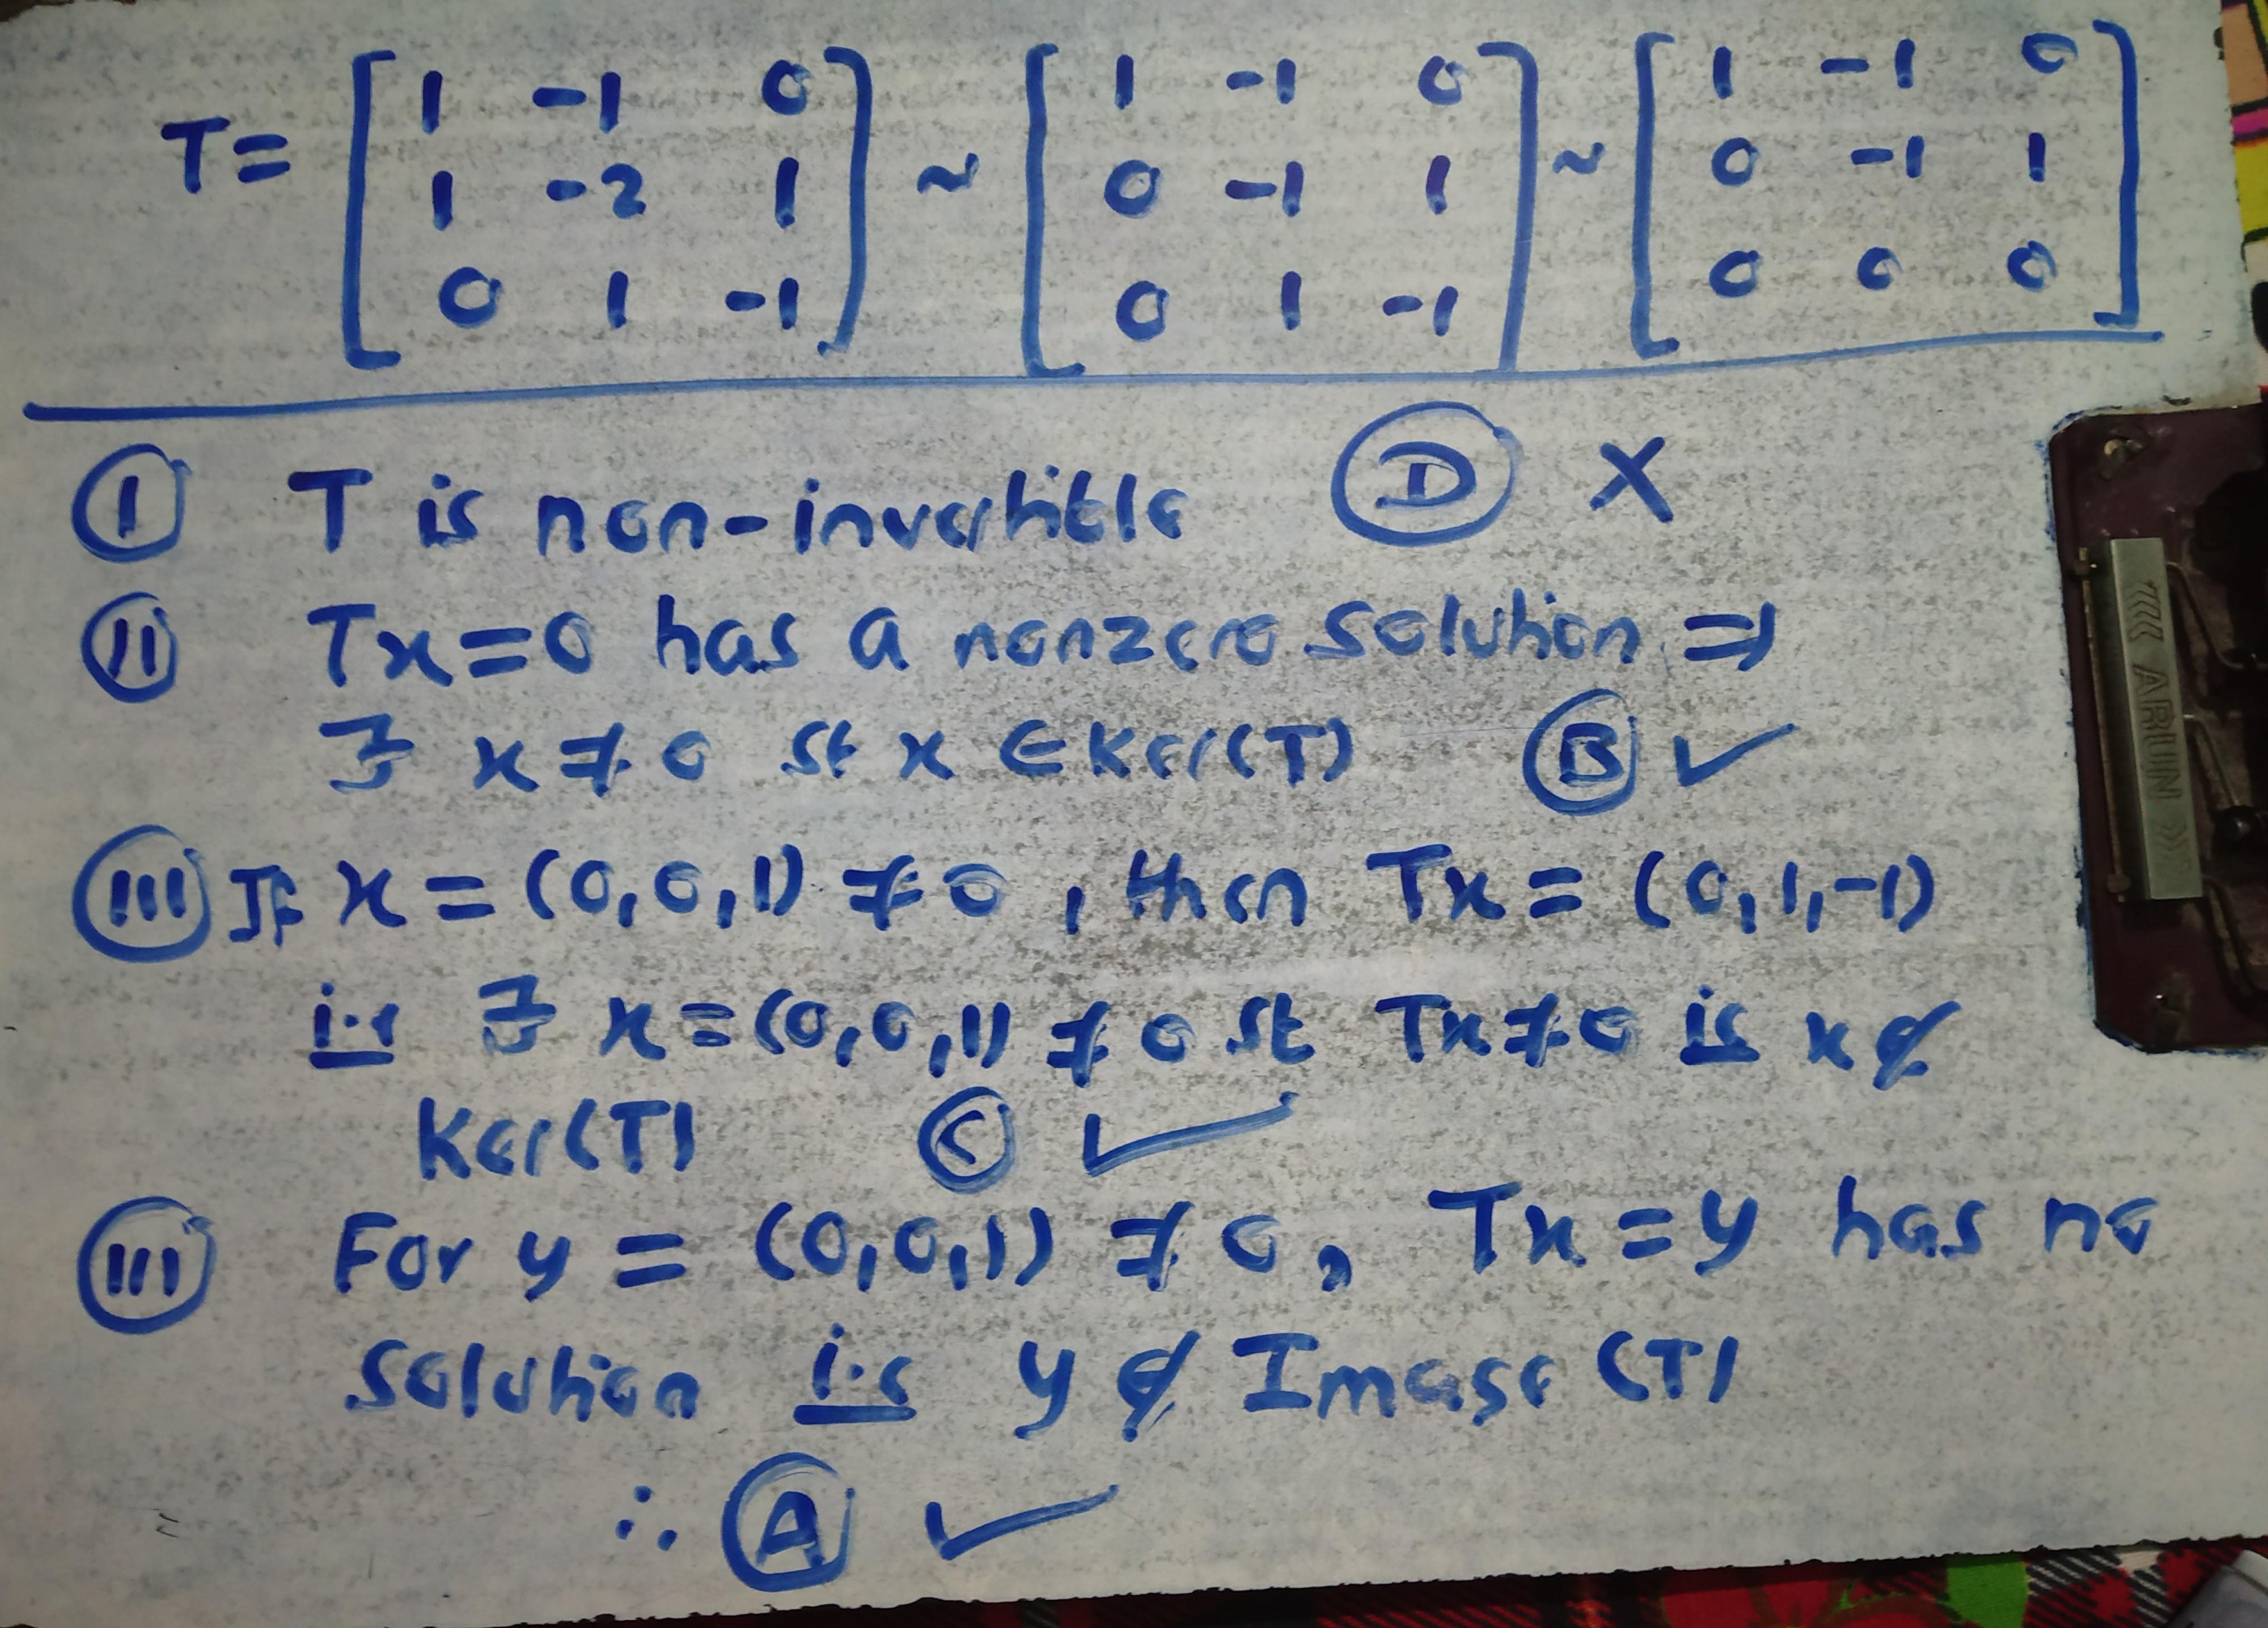 T = [ 1 -1 0 ] ~ [ 1 -1 0 ] ~ [ 1 -1 0 ]
[ 1 -2 1 ] [ 0 -1 1 ] [ 0 -1 1 ]
[ 0 1 -1 ] [ 0 1 -1 ] [ 0 0 0 ]
Ⓘ T is non-invertible Ⓓ X
(II) Tx=0 has a nonzero solution ⇒
∃ x ≠ 0 st x ∈ Ker(T) Ⓑ ✓
(III) If x = (0,0,1) ≠ 0, then Tx = (0,1,-1)
i.e ∃ x = (0,0,1) ≠ 0 st Tx ≠ 0 ie x ∉
Ker(T) Ⓒ ✓
(III) For y = (0,0,1) ≠ 0, Tx = y has no
Solution i.e y ∉ Image (T)
∴ Ⓐ ✓
ARUN